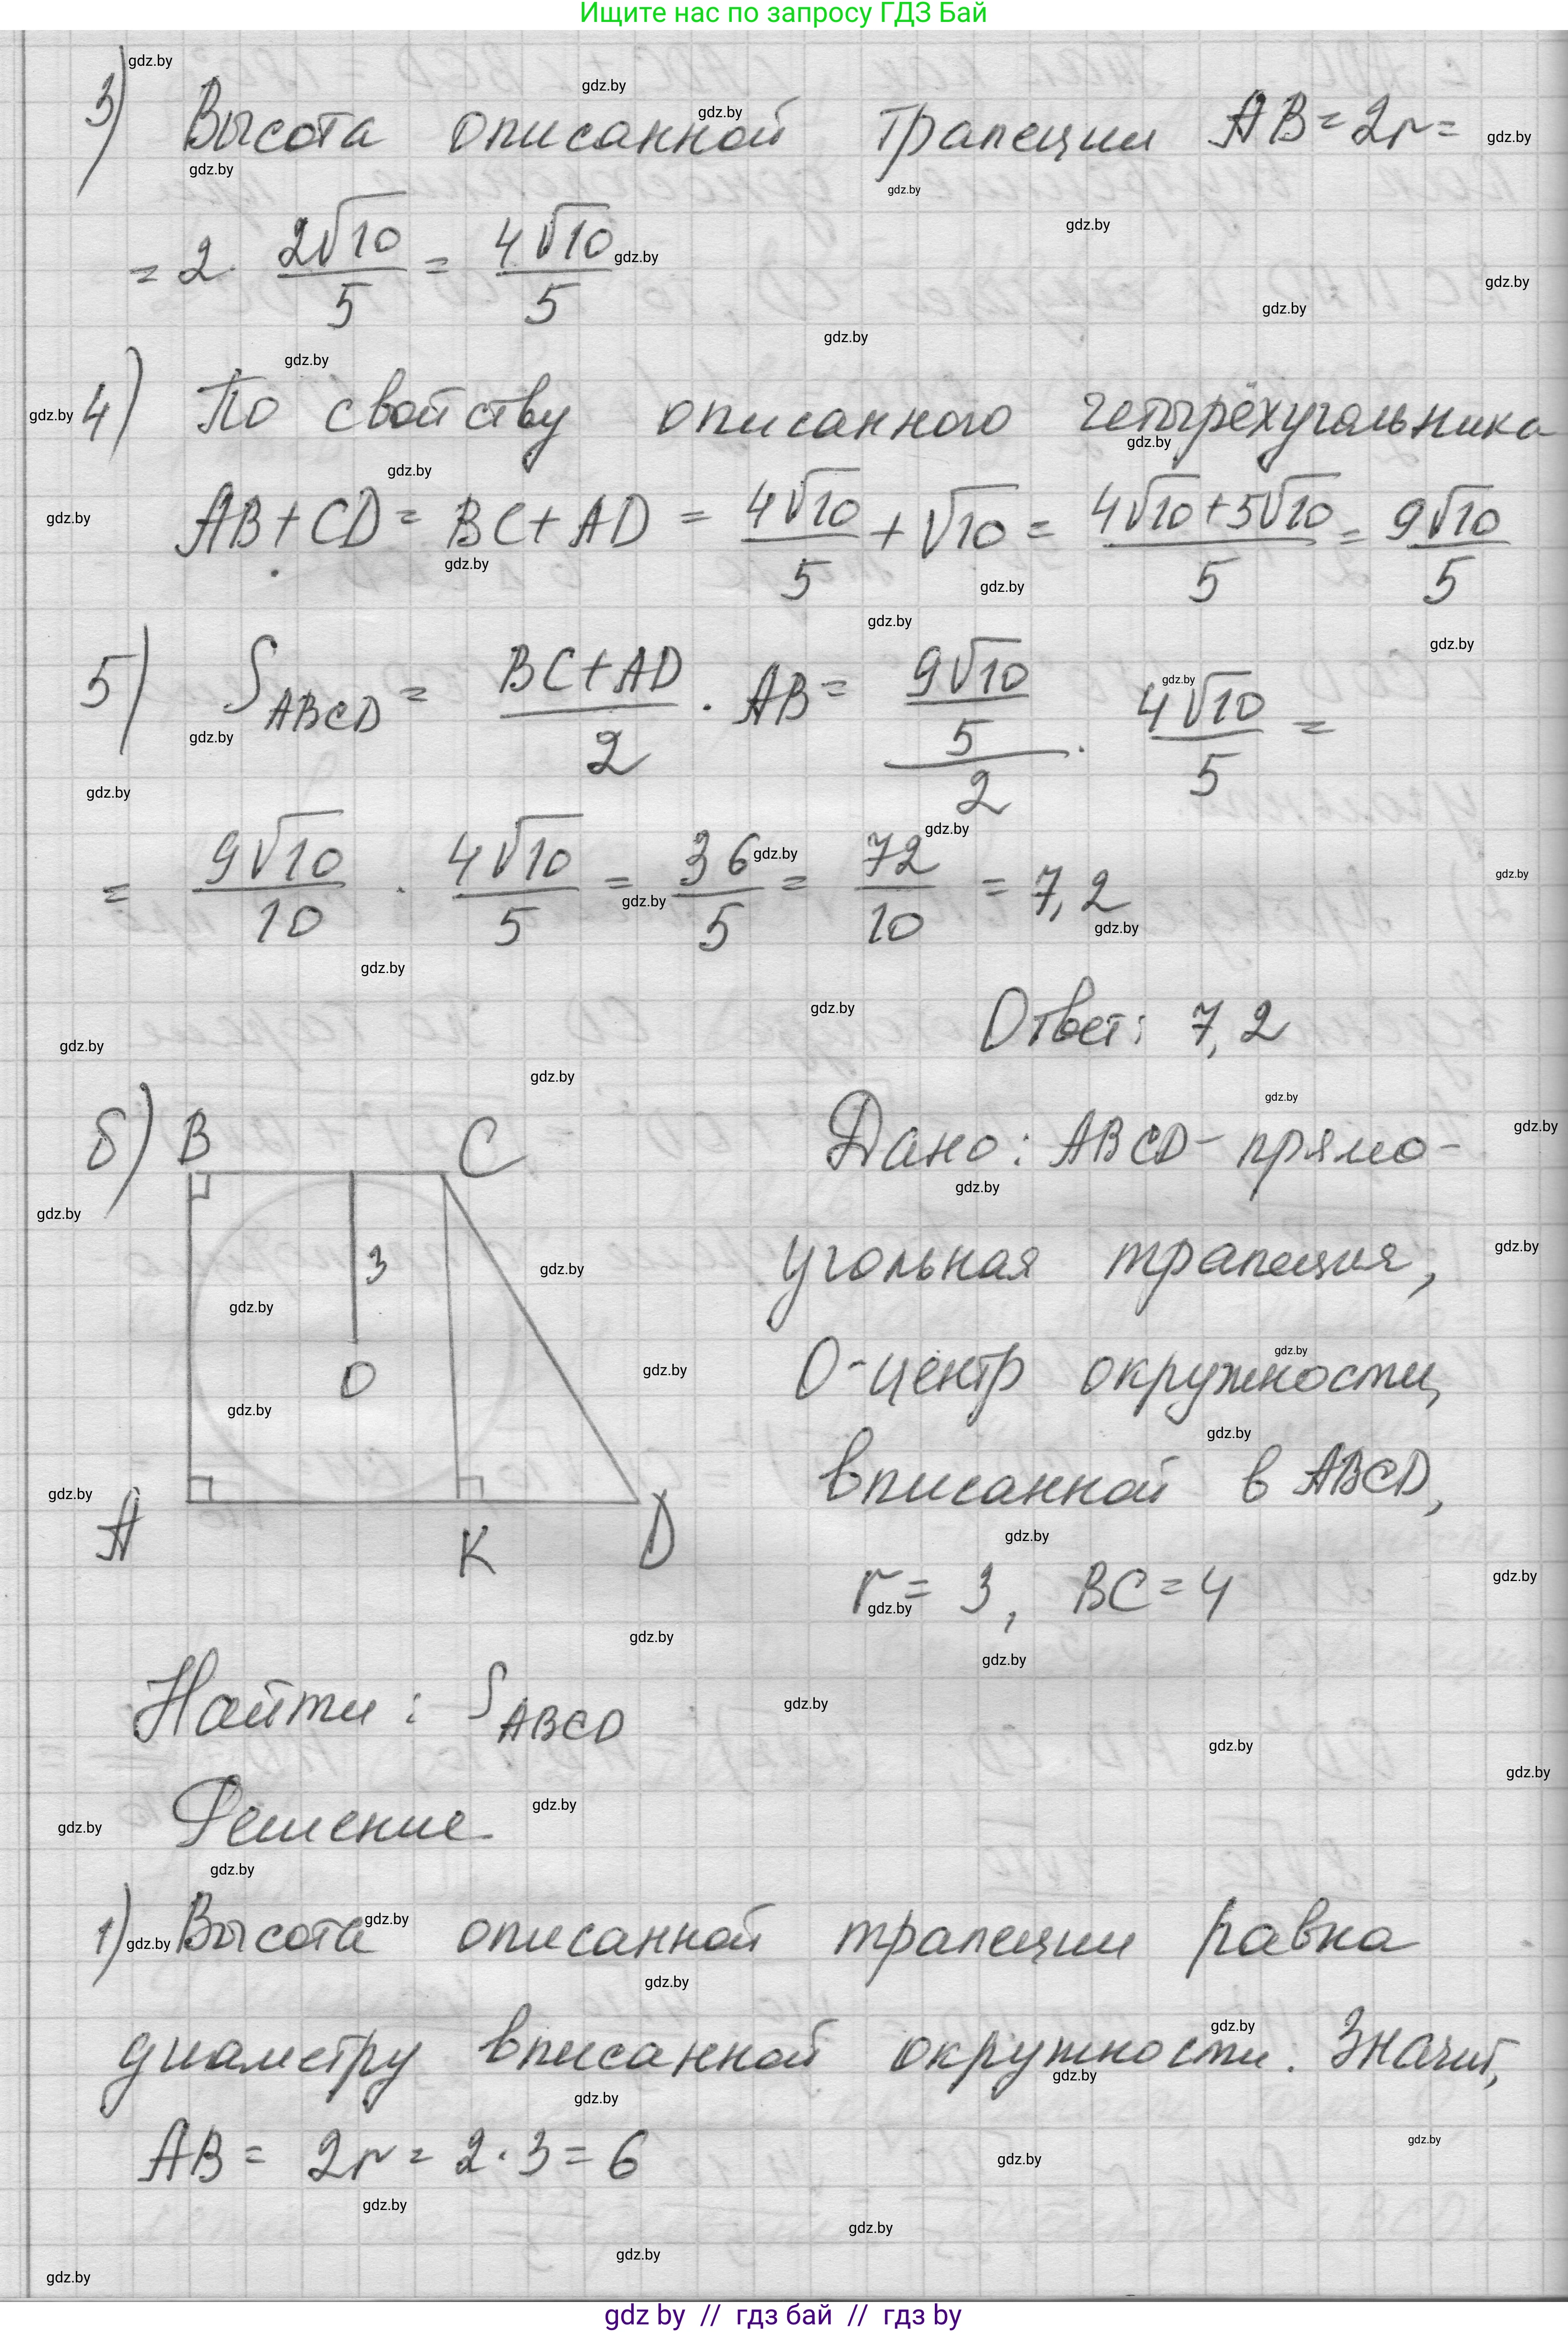 Ищите нас по запросу ГДЗ Бай
3) Высота описанной трапеции AB = 2r =
= 2 · 2√10/5 = 4√10/5
4) По свойству описанного четырёхугольника
AB + CD = BC + AD = 4√10/5 + √10 = (4√10 + 5√10)/5 = 9√10/5
5) S_ABCD = (BC + AD)/2 · AB = (9√10/5)/2 · 4√10/5 =
= 9√10/10 · 4√10/5 = 36/5 = 72/10 = 7,2
Ответ: 7,2
б) B C
3
O
A K D
Дано: ABCD - прямо-
угольная трапеция,
O - центр окружности,
вписанной в ABCD,
r = 3, BC = 4
Найти: S_ABCD
Решение
1) Высота описанной трапеции равна
диаметру вписанной окружности. Значит,
AB = 2r = 2 · 3 = 6
gdz by // гдз бай // гдз by